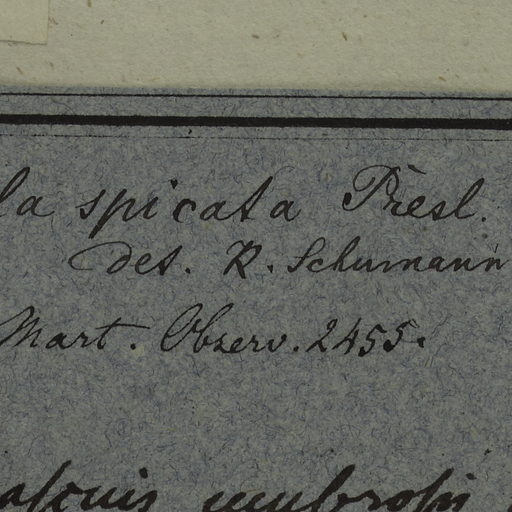 la spicata Presl.
det. K. Schumann
Mart. Observ. 2455.
ascuis umbrosis